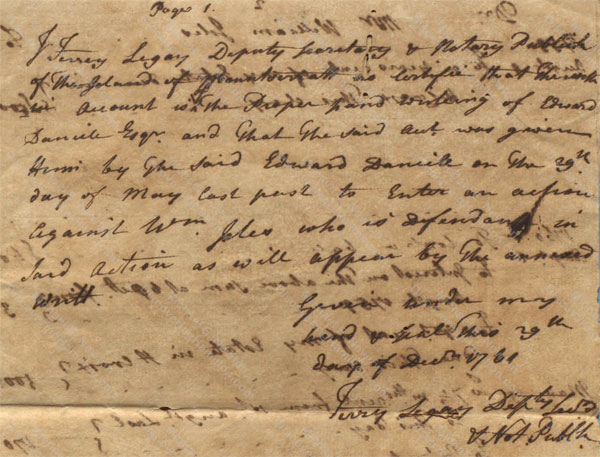 Page 1.
I Terry Legay Deputy Secretary & Notary Publick
of The Island of Mountserratt do Certifie that the with
in Account is in the Proper hand writing of Edward
Daniell Esqr. and That the said Act was given
Him by the said Edward Daniell on The 29th
day of May last past to Enter an action
against Wm. Jeles who is defendant in
said Action as will appear by the annexed
writt.
Given under my
hand & Seal this 29th
day of Decr. 1761
Terry Legay Depty Secry
& Not. Publk.